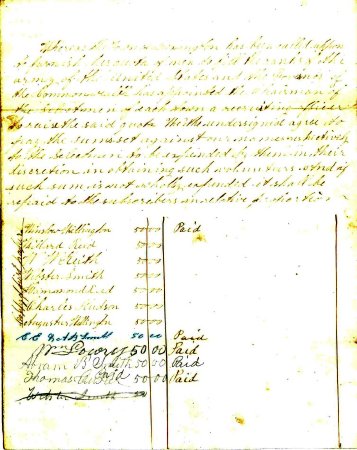 Whereas the Town has been called upon
to furnish her of men to fill the ranks of the
army of the United States and the Governor of
the Commonwealth has appointed the Chairman of
the Selectmen of each town a recruiting officer
to raise the said quota We the undersigned agree to
pay the sums set against our names respectively
to the Selectmen to be expended by them in their
discretion in obtaining such volunteers and if
such sum is not wholly expended it shall be
repaid to the subscribers in relative proportion
Winslow Wellington 50 00 Paid
Reed 50 00
Keith 50 00
Webster Smith 50 00
Hammond Reed 50 00
Charles Hudson 50 00
Augustus Wellington 50 00
Smith 50 00 Paid
Wm Lowry 50 00 Paid
Abram B Smith 50 00 Paid
Thomas 50.00 Paid
Webster Smith 50